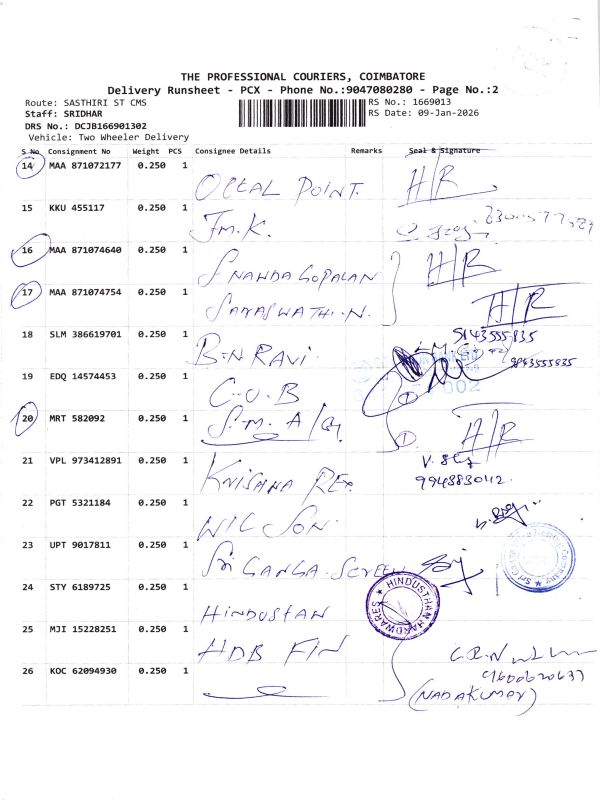 THE PROFESSIONAL COURIERS, COIMBATORE
Delivery Runsheet - PCX - Phone No.:9047080280 - Page No.:2
Route: SASTHIRI ST CMS
RS No.: 1669013
Staff: SRIDHAR
RS Date: 09-Jan-2026
DRS No.: DCJB166901302
Vehicle: Two Wheeler Delivery
S No Consignment No Weight PCS Consignee Details Remarks Seal & Signature
14 MAA 871072177 0.250 1 OCTAL POINT. H/R
15 KKU 455117 0.250 1 Jm.K.
16 MAA 871074640 0.250 1 NANDAGOPALAN H/R
17 MAA 871074754 0.250 1 SARASWATHI.N. H/R
18 SLM 386619701 0.250 1 B.N RAVI.
9843555835
19 EDQ 14574453 0.250 1 C.O.B
20 MRT 582092 0.250 1 S.M. A/C H/R
21 VPL 973412891 0.250 1 KRISHNA REX
22 PGT 5321184 0.250 1 WILSON.
23 UPT 9017811 0.250 1 Sri GANGA SCREEN
24 STY 6189725 0.250 1 HINDUSTAN
HINDUSTHAN HARDWARES
25 MJI 15228251 0.250 1 HDB FIN
26 KOC 62094930 0.250 1
(NADAKUMAR)